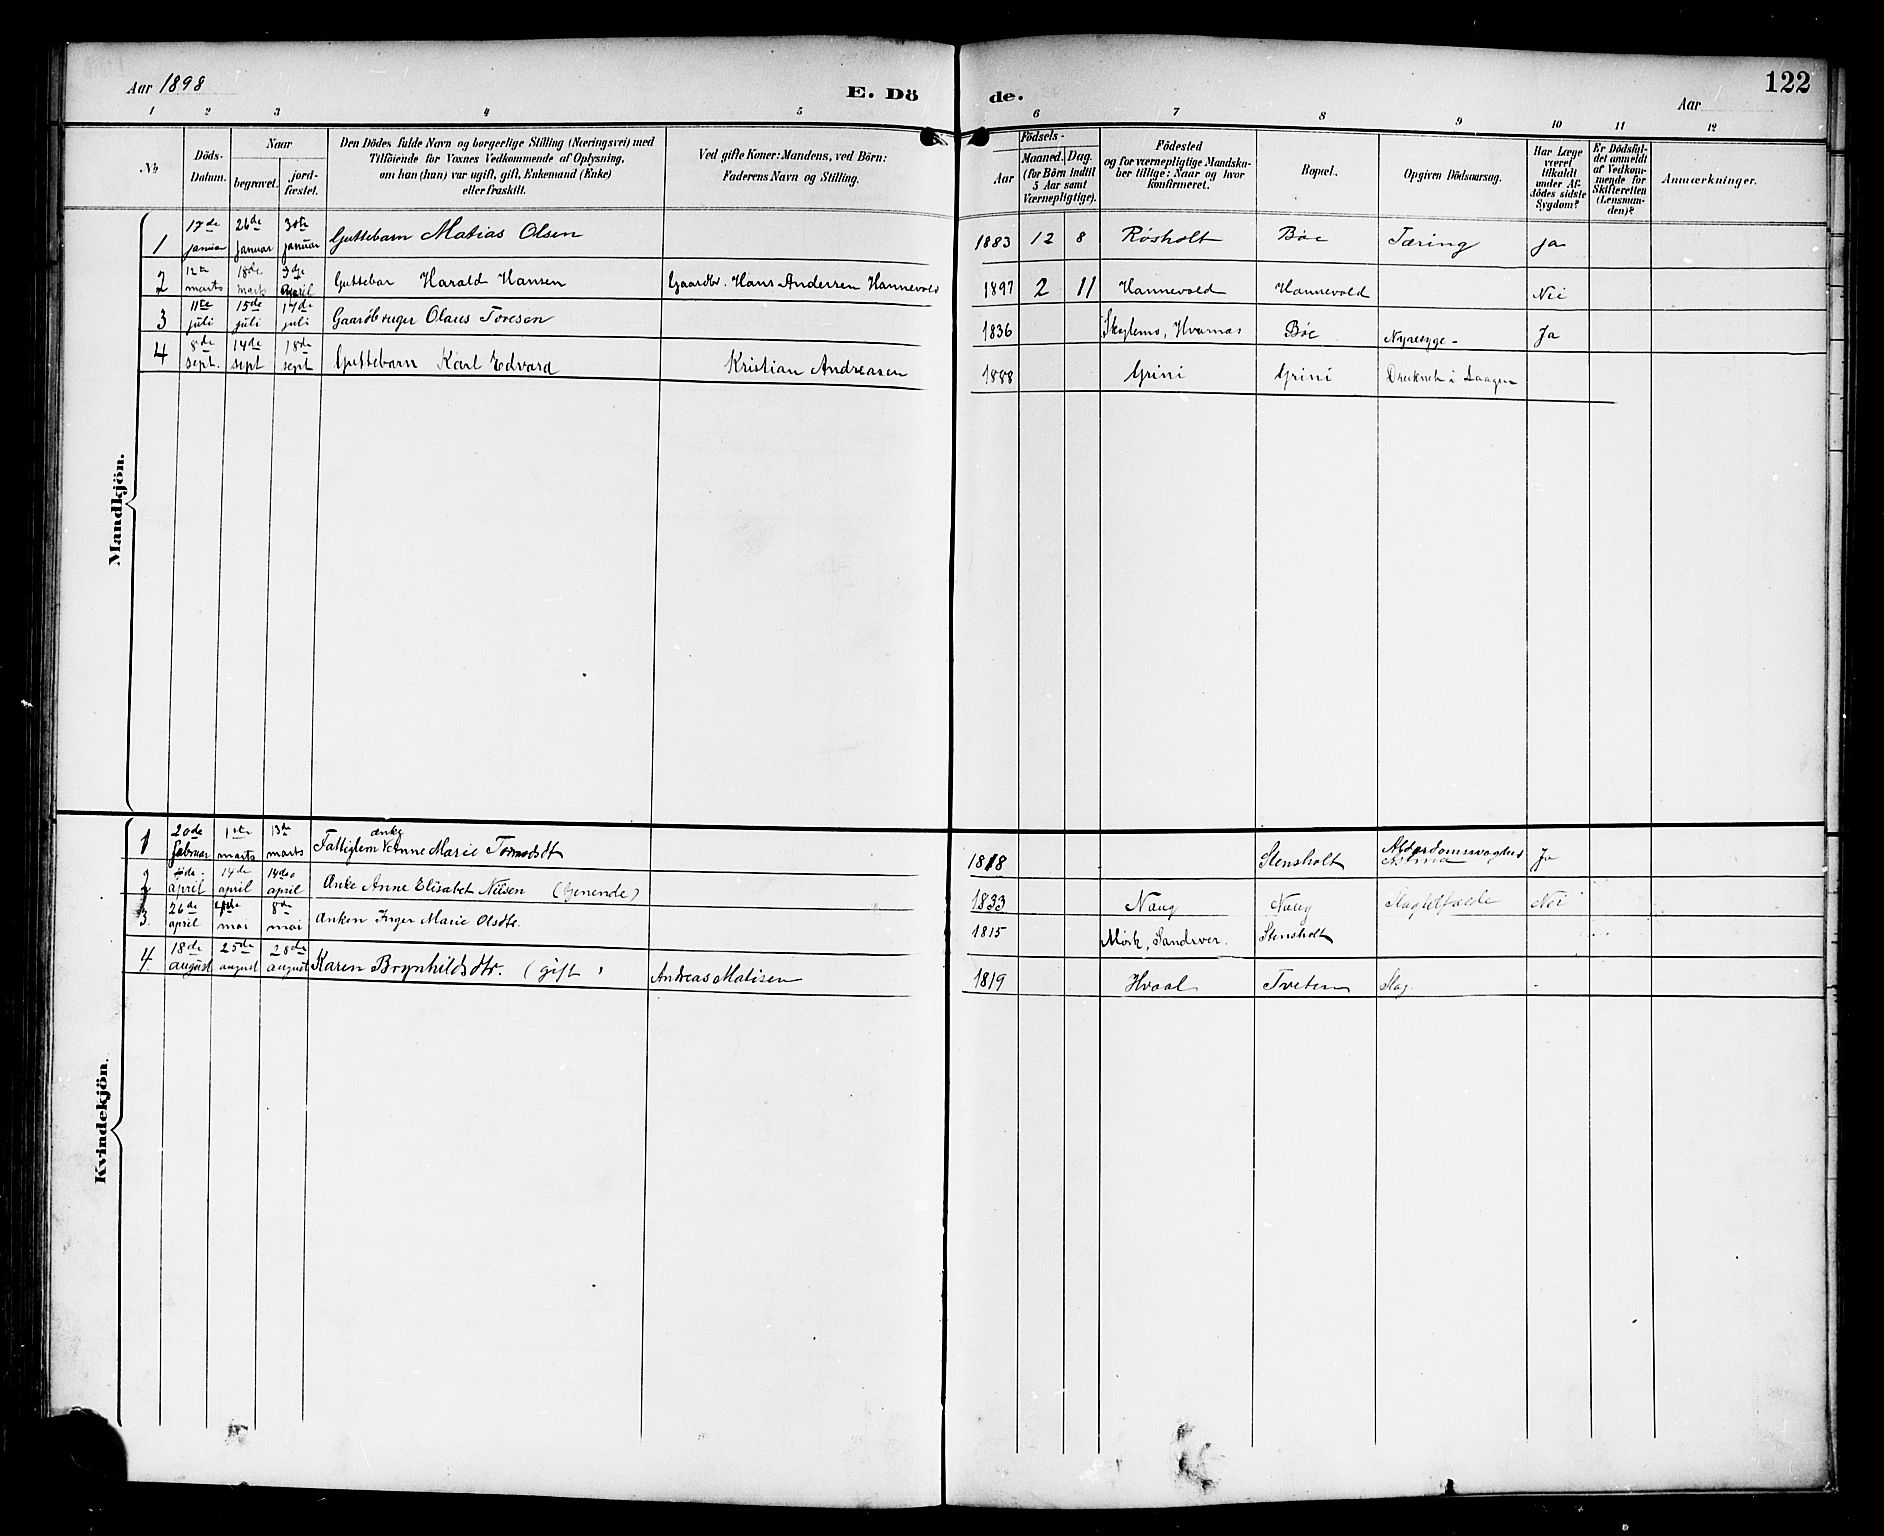 Aar 1898
E. Dö
de.
Aar
122
1 2 3 4 5 6 7 8 9 10 11 12
No
Döds-
Datum.
Naar
begravet.
jord-
fæstet.
Den Dödes fulde Navn og borgerlige Stilling (Næringsvei) med
Tilföiende for Voxnes Vedkommende af Oplysning,
om han (hun) var ugift, gift, Enkemand (Enke)
eller fraskilt.
Ved gifte Koner: Mandens, ved Börn:
Faderens Navn og Stilling.
Födsels-
Aar
Maaned. Dag.
(for Börn indtil
5 Aar samt
Værnepligtige).
Födested
og for værnepligtige Mandska-
ber tillige: Naar og hvor
konfirmeret.
Bopæl.
Opgiven Dödsaarsag.
Har Læge
været
tilkaldt
under Af-
dödes sidste
Sygdom?
Er Dödsfal-
det anmeldt
af Vedkom-
mende for
Skifteretten
(Lensman-
den)?
Anmærkninger.
Mandkjön.
1 17de januar 26de januar 30te januar Guttebarn Matias Olsen 1883 12 8 Røsholt Bøe Tæring Ja
2 12te marts 18de marts 3dje april Guttebar Harald Hansen Gaardbr. Hans Andersen Hannevold 1897 2 11 Hannevold Hannevold Nei
3 11te juli 15de juli 17de juli Gaardbruger Olaus Toresen 1836 Hvarnæs Bøe Nyresyge - Ja
4 8de sept. 14de sept 18de sept Guttebarn Karl Edvard Kristian Andreasen 1888 Grini Grini Druknet i Laagen
Kvindekjön.
1 20de februar 1ste marts 13de marts Fattiglem enke Anne Marie 1818 Stensholt Astma Ja
2 april 14de april 14de april Anke Anne Elisabet Nilsen (Genende) 1833 Naug Naug Slagtilfælde Nei
3. 26de april mai 8de mai Anken Inger Marie Olsdtr. 1815 Mørk, Sandsver. Stensholt
4. 18de august 25de august 28de august Karen Brynhildsdtr. (gift) Andreas Matisen 1819 Hvaal Tveten Slag.